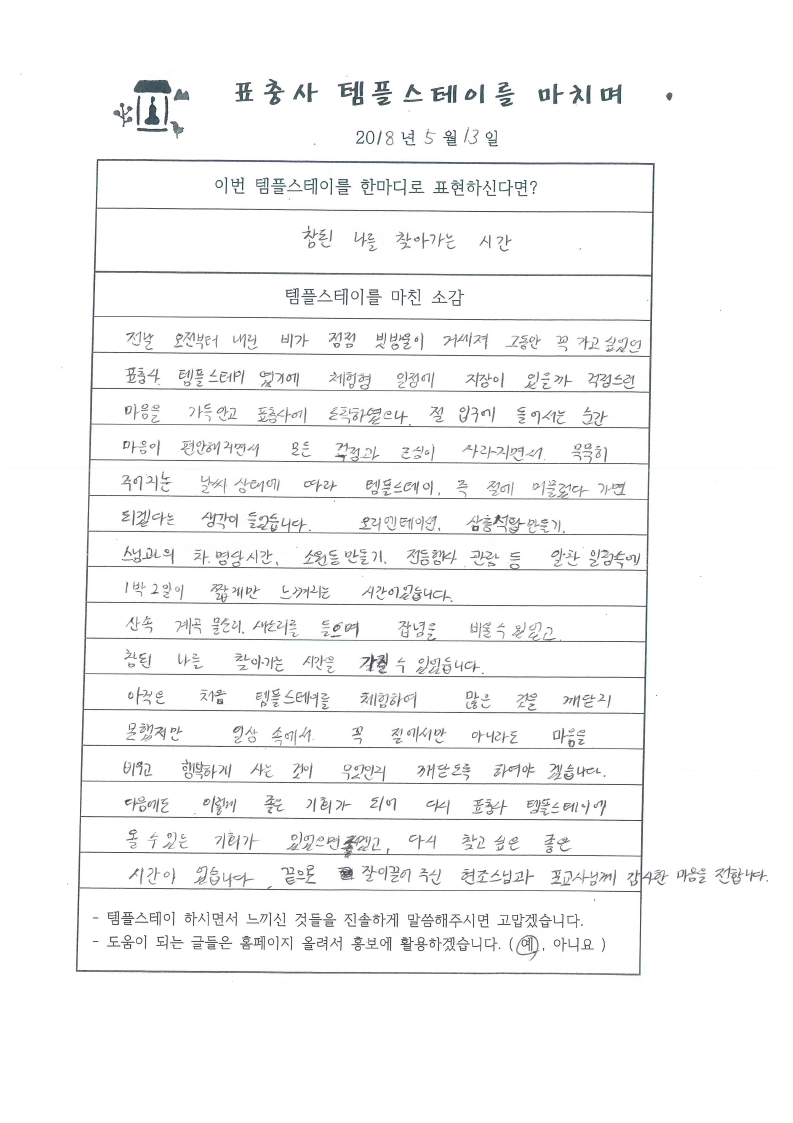 표충사 템플스테이를 마치며
2018년 5월 13일
이번 템플스테이를 한마디로 표현하신다면?
참된 나를 찾아가는 시간
템플스테이를 마친 소감
전날 오전부터 내린 비가 점점 빗방울이 거세져 그동안 꼭 가고싶었던
표충사 템플스테이 였기에 체험형 일정에 지장이 있을까 걱정스런
마음을 가득안고 표충사에 도착하였으나, 절 입구에 들어서는 순간
마음이 편안해지면서 모든 걱정과 근심이 사라지면서 묵묵히
주어지는 날씨 상태에 따라 템플스테이, 즉 절에 머물렀다 가면
되겠다는 생각이 들었습니다. 오리엔테이션, 삼층석탑만들기,
스님과의 차.명상시간, 소원등만들기, 전등행사 관람 등 알찬 일정속에
1박2일이 짧게만 느껴지는 시간이었습니다.
산속 계곡 물소리, 새소리를 들으며 잡념을 비울 수 있었고,
참된 나를 찾아가는 시간을 가질 수 있었습니다.
아직은 처음 템플스테이를 체험하여 많은 것을 깨닫지
못했지만 일상 속에서 꼭 절에서만 아니라도 마음을
비우고 행복하게 사는 것이 무엇인지 깨닫도록 하여야 겠습니다.
다음에도 이렇게 좋은 기회가 되어 다시 표충사 템플스테이에
올 수 있는 기회가 있었으면 좋겠고, 다시 찾고 싶은 좋은
시간이 었습니다. 끝으로 잘이끌어 주신 현조스님과 포교사님께 감사한 마음을 전합니다.
- 템플스테이 하시면서 느끼신 것들을 진솔하게 말씀해주시면 고맙겠습니다.
- 도움이 되는 글들은 홈페이지 올려서 홍보에 활용하겠습니다. ( 예, 아니요 )